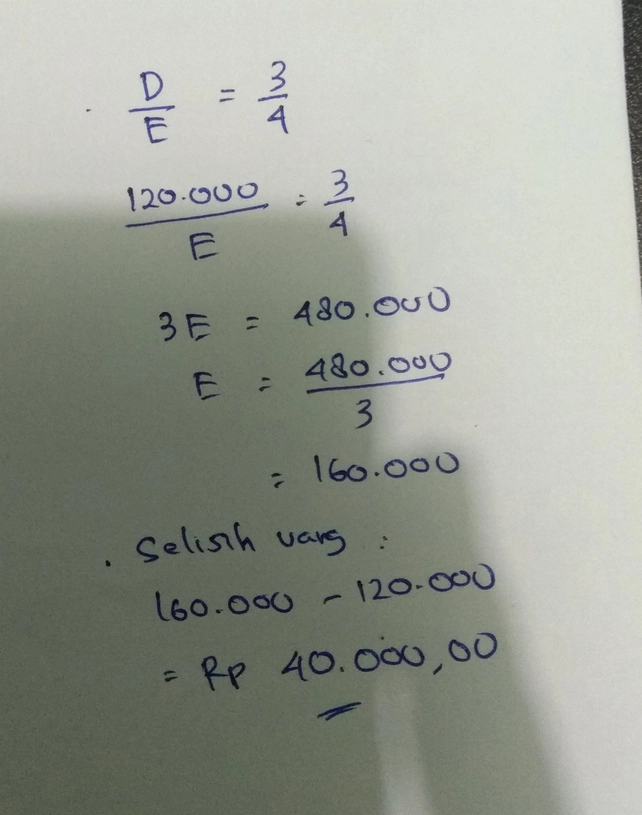 D/E = 3/4
120.000/E = 3/4
3E = 480.000
E = 480.000/3
= 160.000
. Selisih uang :
160.000 - 120.000
= Rp 40.000,00